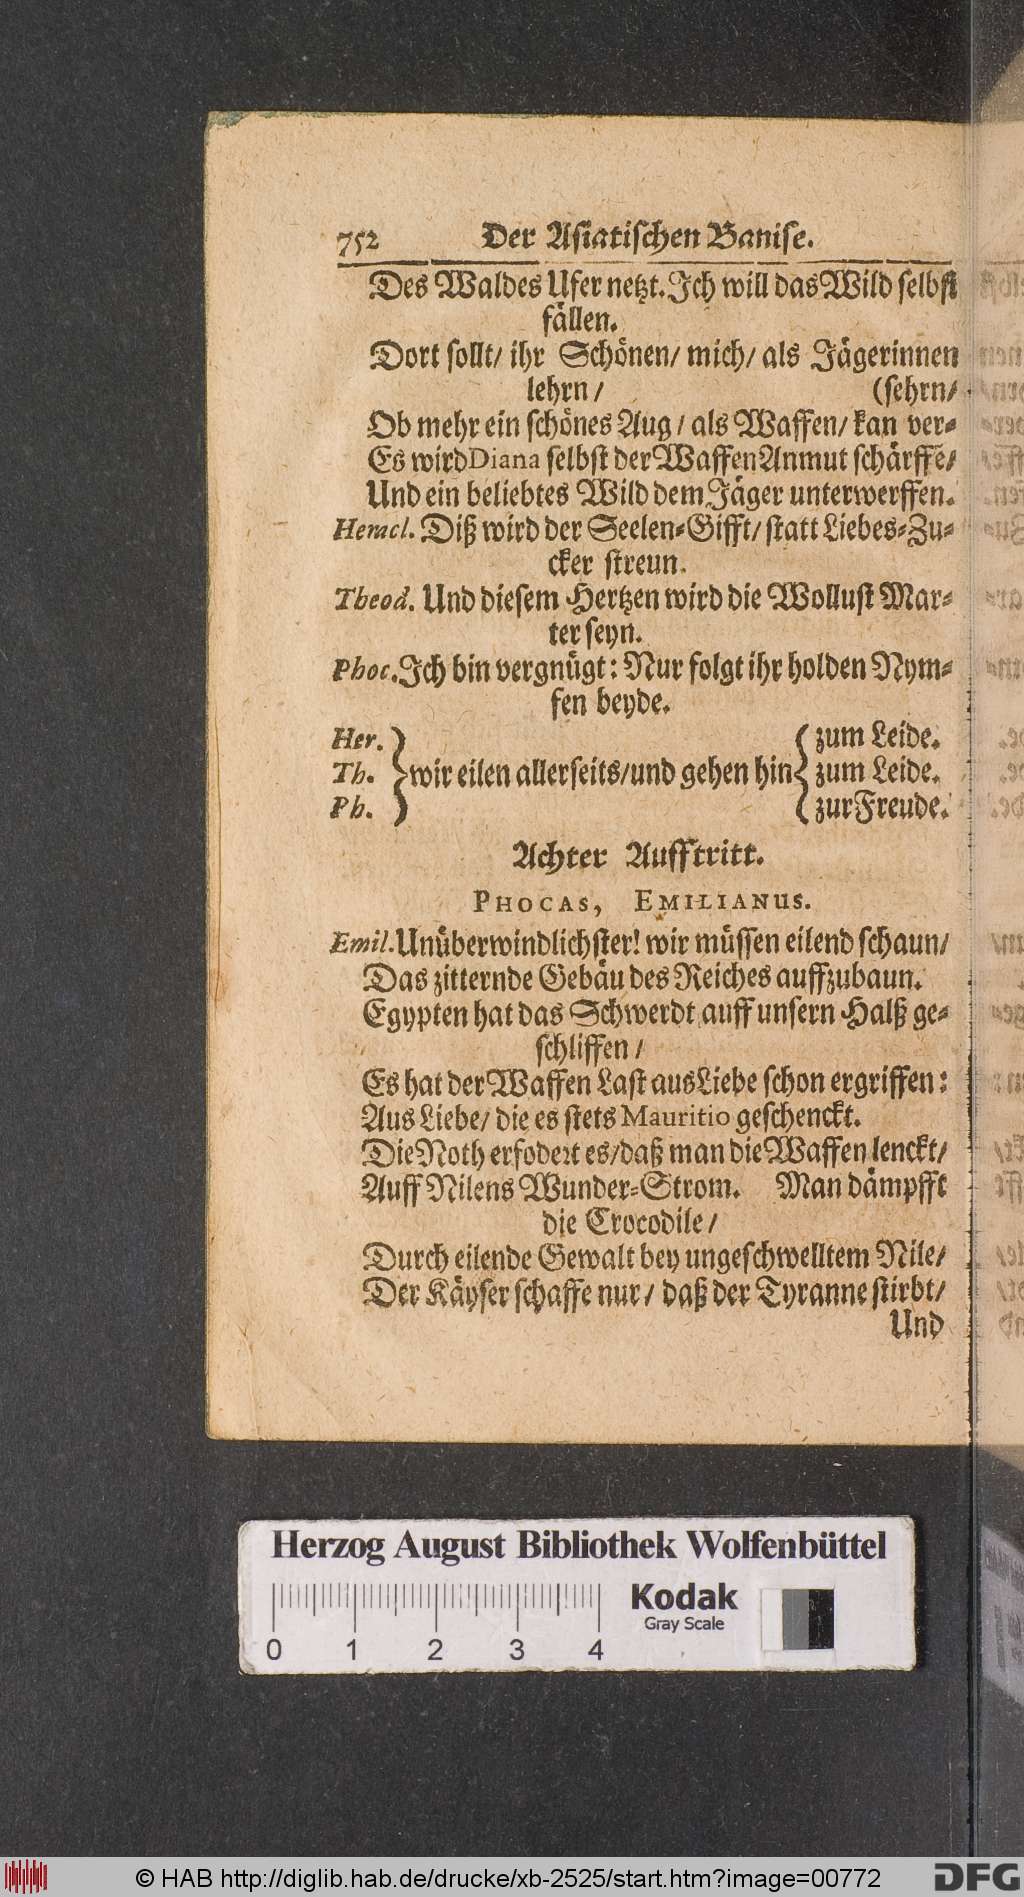 752 Der Asiatischen Banise.
Des Waldes Ufer netzt. Ich will das Wild selbst
fällen.
Dort sollt/ ihr Schönen/ mich/ als Jägerinnen
lehrn / (sehrn/
Ob mehr ein schönes Aug / als Waffen/ kan ver-
Es wird Diana selbst der Waffen Anmut schärffē/
Und ein beliebtes Wild dem Jäger unterwerffen.
Heracl. Diß wird der Seelen-Gifft/ statt Liebes-Zu-
cker streun.
Theod. Und diesem Hertzen wird die Wollust Mar-
ter seyn.
Phoc. Ich bin vergnügt: Nur folgt ihr holden Nym-
fen beyde.
Her. } { zum Leide.
Th. } wir eilen allerseits/und gehen hin { zum Leide.
Ph. } { zur Freude.
Achter Aufftritt.
PHOCAS, EMILIANUS.
Emil. Unüberwindlichster! wir müssen eilend schaun/
Das zitternde Gebäu des Reiches auffzubaun.
Egypten hat das Schwerdt auff unsern Halß ge-
schliffen /
Es hat der Waffen Last aus Liebe schon ergriffen:
Aus Liebe/ die es stets Mauritio geschenckt.
Die Noth erfodert es/daß man die Waffen lenckt/
Auff Nilens Wunder-Strom. Man dämpfft
die Crocodile /
Durch eilende Gewalt bey ungeschwelltem Nile/
Der Käyser schaffe nur / daß der Tyranne stirbt/
Und
Herzog August Bibliothek Wolfenbüttel
Kodak
Gray Scale
0 1 2 3 4
© HAB http://diglib.hab.de/drucke/xb-2525/start.htm?image=00772
DFG